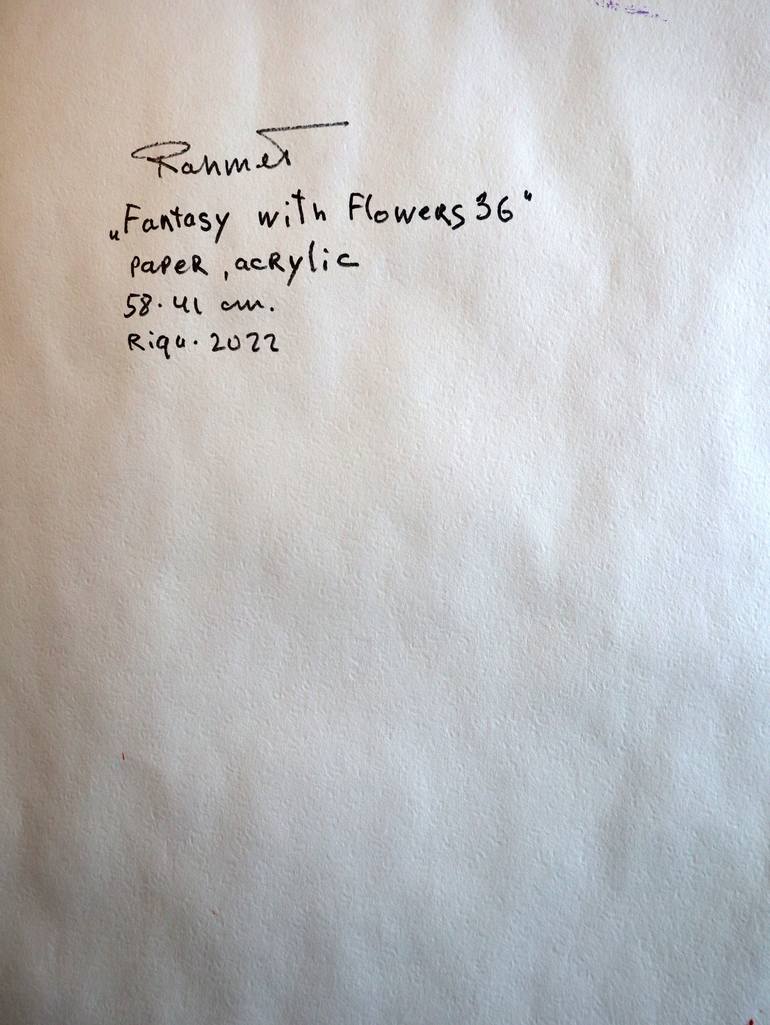 Rahmet
„Fantasy with Flowers 36"
PAPER, acRylic
58.41 cm.
Riga. 2022